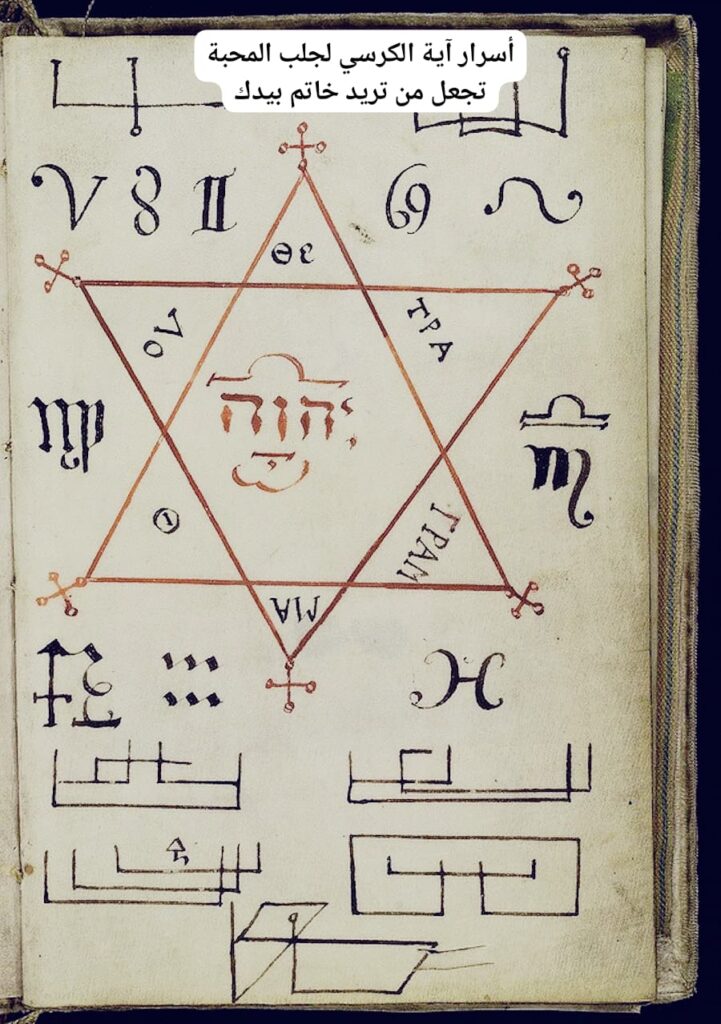 أسرار آية الكرسي لجلب المحبة
تجعل من تريد خاتم بيدك
Θε
ΤΡΑ
יהוה
ΓΡΑΜ
ΜΑ